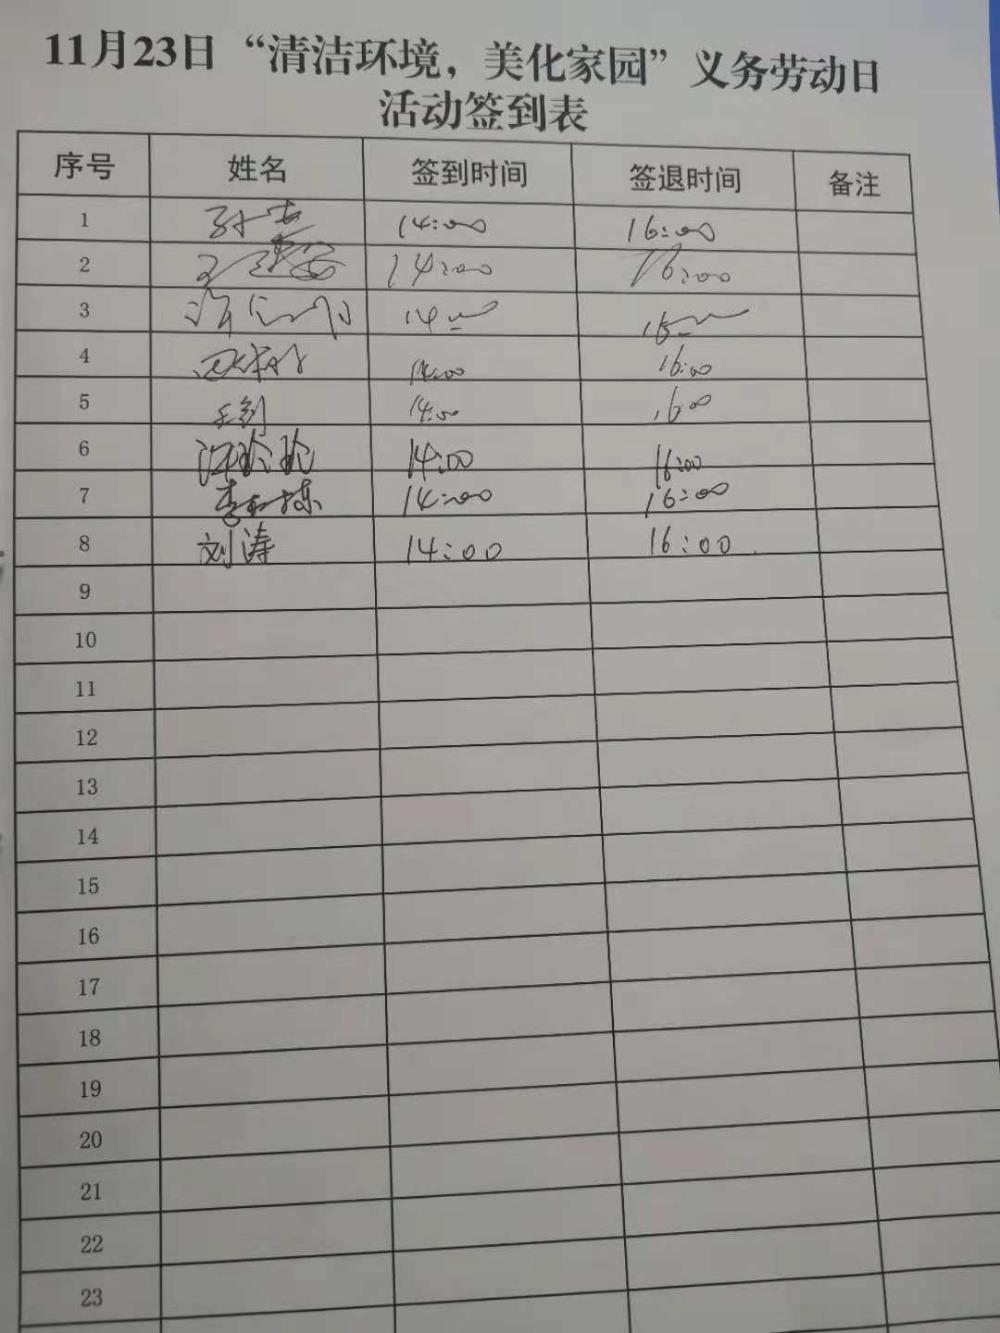 11月23日“清洁环境，美化家园”义务劳动日
活动签到表
序号 姓名 签到时间 签退时间 备注
1 14:00 16:00
2 14:00 16:00
3 14
4 14:00 16:00
5 14:00 16:00
6 汪玲玲 14:00 16:00
7 14:00 16:00
8 刘涛 14:00 16:00
9
10
11
12
13
14
15
16
17
18
19
20
21
22
23